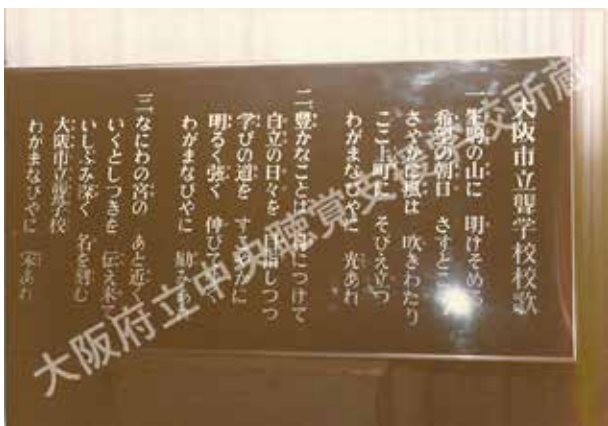 大阪市立聾学校校歌
一 生駒の山に 明けそめ
希望の朝日 さすところ
さやかに風は 吹きわたり
ここ上町に そびえ立つ
わがまなびやに 光あれ
二 豊かなことば 身につけて
自立の日々を 目指しつつ
学びの道を すこやかに
明るく強く 伸びて
わがまなびやに 励みあれ
三 なにわの宮の あと近く
いくとしつきを 伝え来て
いしぶみ深く 名を刻む
大阪市立聾学校
わがまなびやに 栄あれ
大阪府立中央聴覚支援学校所蔵